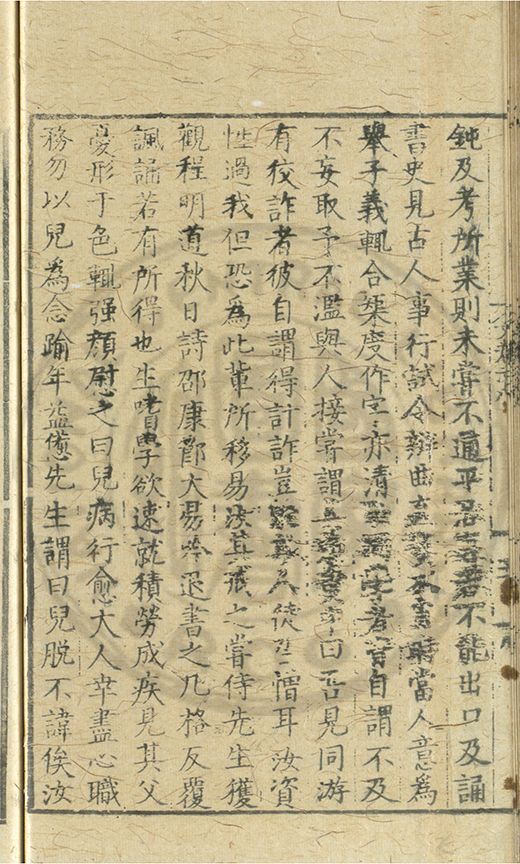 鈍及考所業則未嘗不通平居若不能出口及誦
書史見古人事行試令辯曲直當人意為
舉子義輒合榘度作字亦清自謂不及
不妄取予不濫與人接嘗謂曰吾見同游
有狡詐者彼自謂得計詐豈徒取憎耳汝資
性過我但恐為此輩所移易汝其戒之嘗侍先生獲
觀程明道秋日詩邵康節大易吟退書之几格反覆
諷誦若有所得也生嗜學欲速就積勞成疾見其父
憂形于色輒强顏慰之曰兒病行愈大人幸盡心職
務勿以兒為念踰年益憊先生謂曰兒脫不諱俟汝